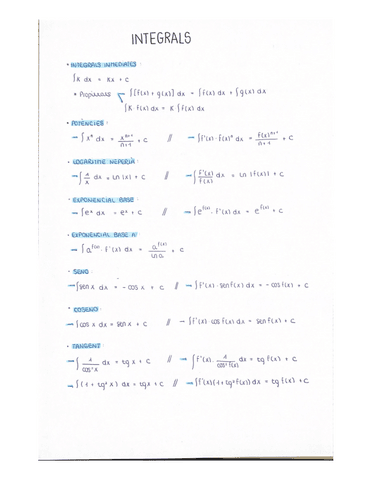 INTEGRALS
• INTEGRALS INMEDIATES:
∫K dx = Kx + C
• Propietats ∫[f(x) + g(x)] dx = ∫f(x) dx + ∫g(x) dx
∫K f(x) dx = K ∫f(x) dx
• POTÈNCIES:
→ ∫xⁿ dx = xⁿ⁺¹/n+1 + C // → ∫f'(x)·f(x)ⁿ dx = f(x)ⁿ⁺¹/n+1 + C
• LOGARITME NEPERIÀ:
→ ∫1/x dx = ln(x) + C // → ∫f'(x)/f(x) dx = ln(f(x)) + C
• EXPONENCIAL BASE e
→ ∫eˣ dx = eˣ + C // → ∫e^f(x)·f'(x) dx = e^f(x) + C
• EXPONENCIAL BASE A:
→ ∫a^f(x)·f'(x) dx = a^f(x)/ln a + C
• SENO:
→ ∫sen x dx = -cos x + C // → ∫f'(x)·sen f(x) dx = -cos f(x) + C
• COSENO:
→ ∫cos x dx = sen x + C // → ∫f'(x) cos f(x) dx = sen f(x) + C
• TANGENT:
→ ∫1/cos²x dx = tg x + C // → ∫f'(x)·1/cos²f(x) dx = tg f(x) + C
→ ∫(1 + tg²x) dx = tg x + C // → ∫f'(x)(1 + tg²f(x)) dx = tg f(x) + C